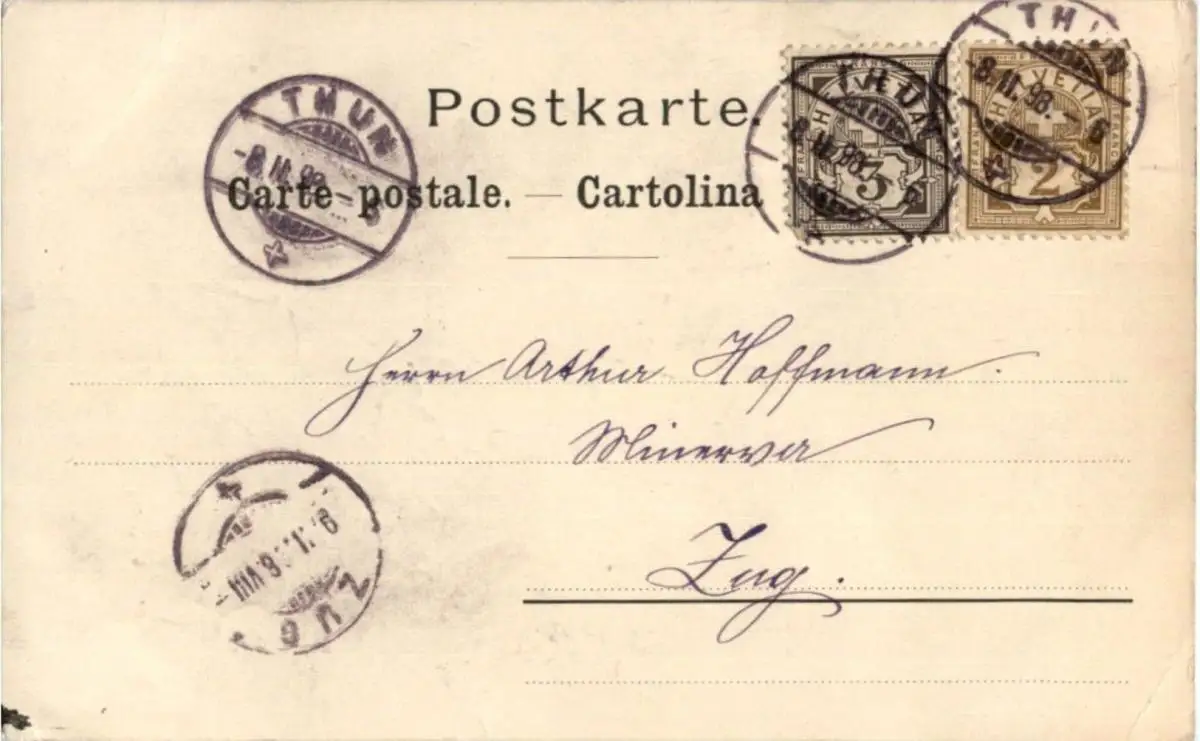 Postkarte.
Carte postale. — Cartolina
THUN
-8.II.98.-6
THUN
8.II.98. 6
HELVETIA
FRANCO
3
THUN
-8.II.98.-6
HELVETIA
FRANCO
2
Herrn Arthur Hoffmann.
Minerva
Zug.
ZUG